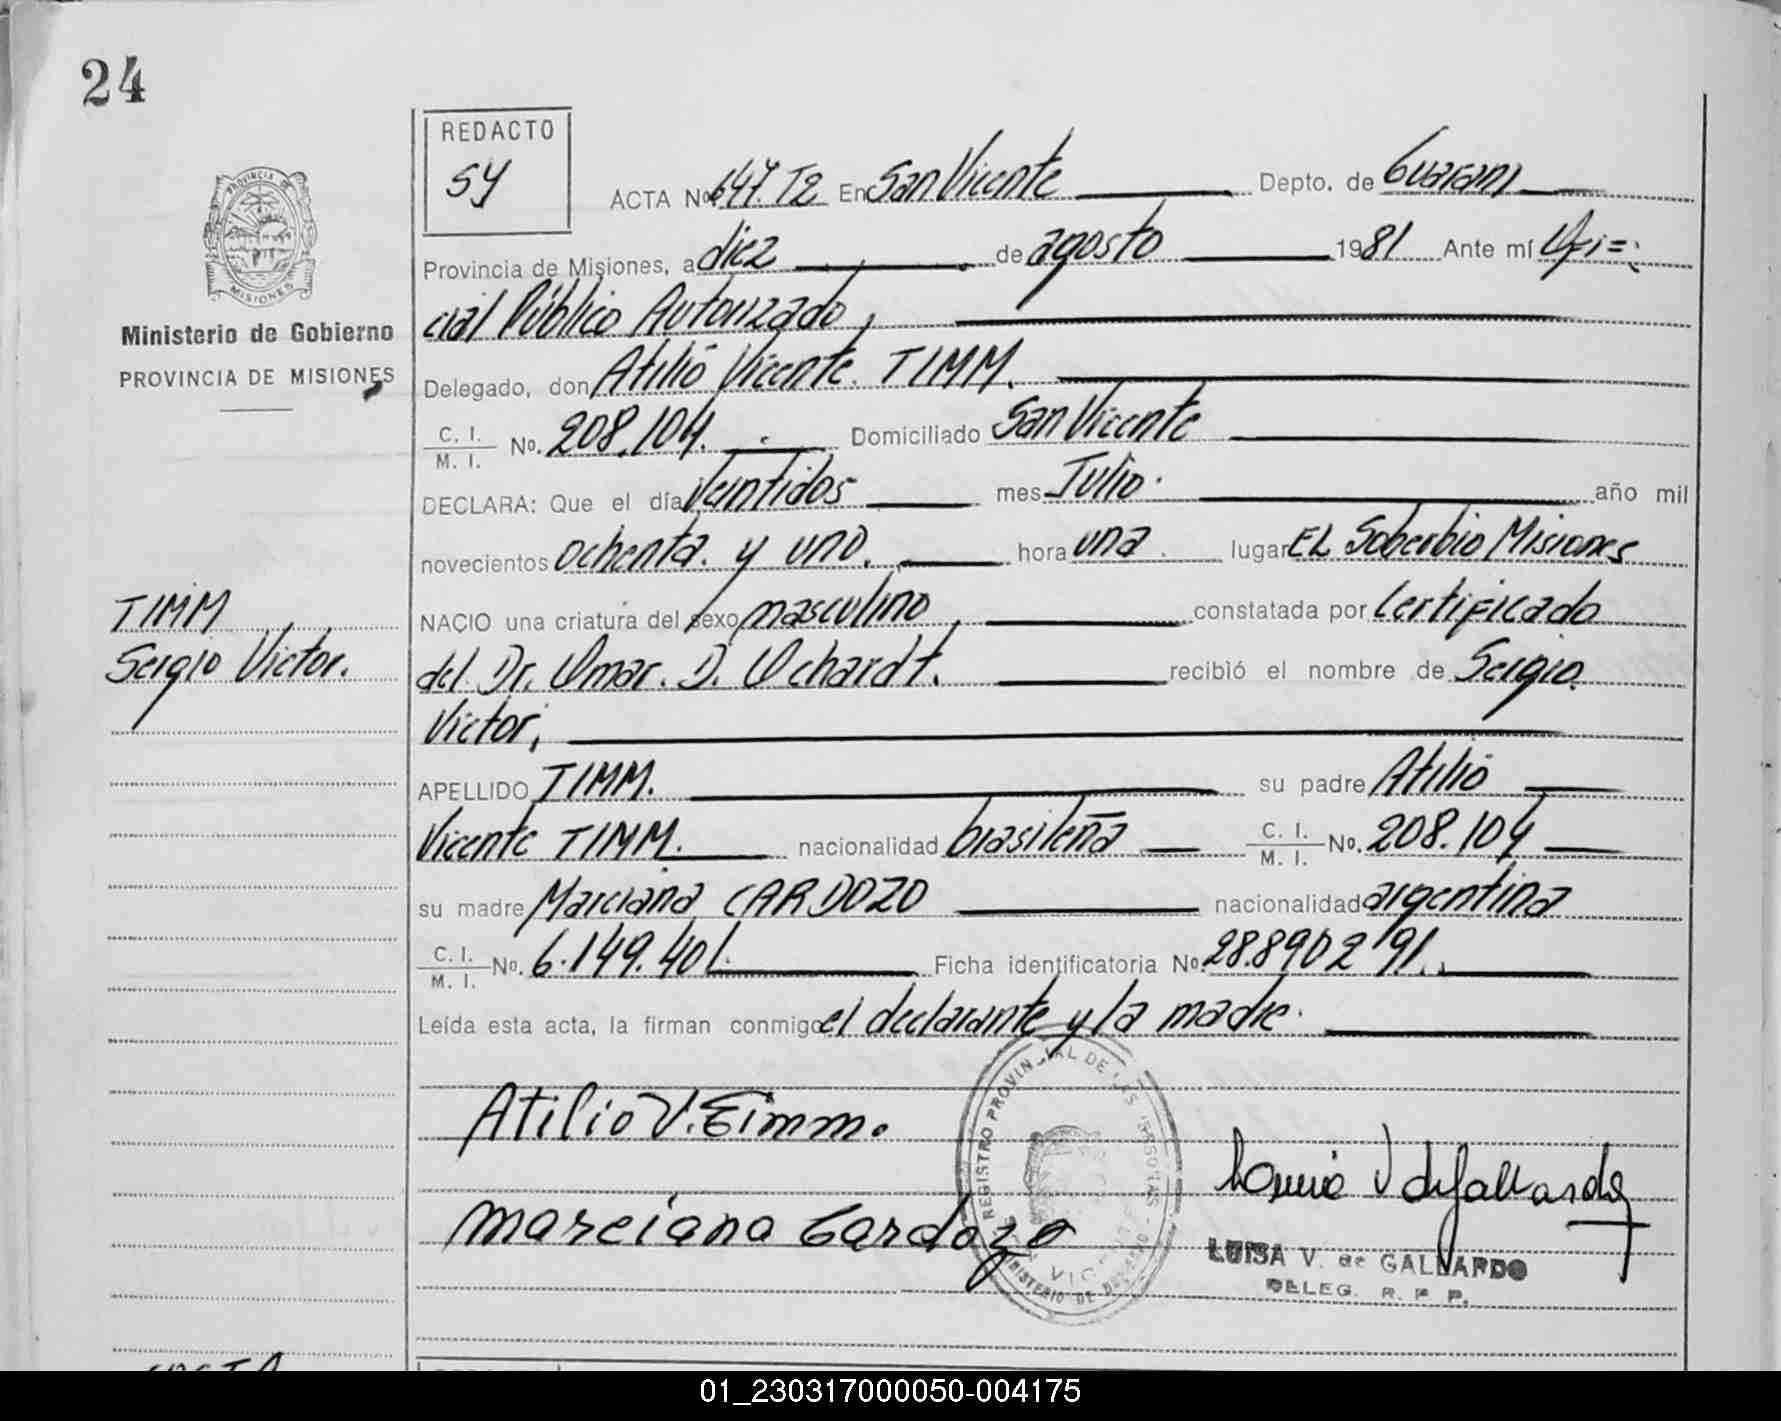 24
REDACTO
SY
ACTA No 647. T2 En San Vicente Depto. de Guaraní
Provincia de Misiones, a diez de agosto 1981 Ante mí Ofi=
cial Público Autorizado,
Delegado, don Atilio Vicente. TIMM.
C. I. / M. I. No. 208.104. Domiciliado San Vicente
DECLARA: Que el día Veintidos mes Julio. año mil
novecientos ochenta. y uno. hora una. lugar EL Soberbio Misiones
NACIO una criatura del sexo masculino, constatada por Certificado
del Dr. Omar. D. Ochardt. recibió el nombre de Sergio
Victor,
APELLIDO TIMM. su padre Atilio
Vicente TIMM. nacionalidad brasileña C. I. / M. I. No. 208.104
su madre Marciana CARDOZO nacionalidad argentina
C. I. / M. I. No. 6.149.401. Ficha identificatoria No. 28.890291.
Leída esta acta, la firman conmigo el declarante y la madre.
Atilio V. Timm.
Marciana Cardozo
LUISA V. de GALLARDO
DELEG. R. P. P.
PROVINCIA DE
MISIONES
Ministerio de Gobierno
PROVINCIA DE MISIONES
TIMM
Sergio Victor.
REGISTRO PROVINCIAL DE LAS PERSONAS
01_230317000050-004175